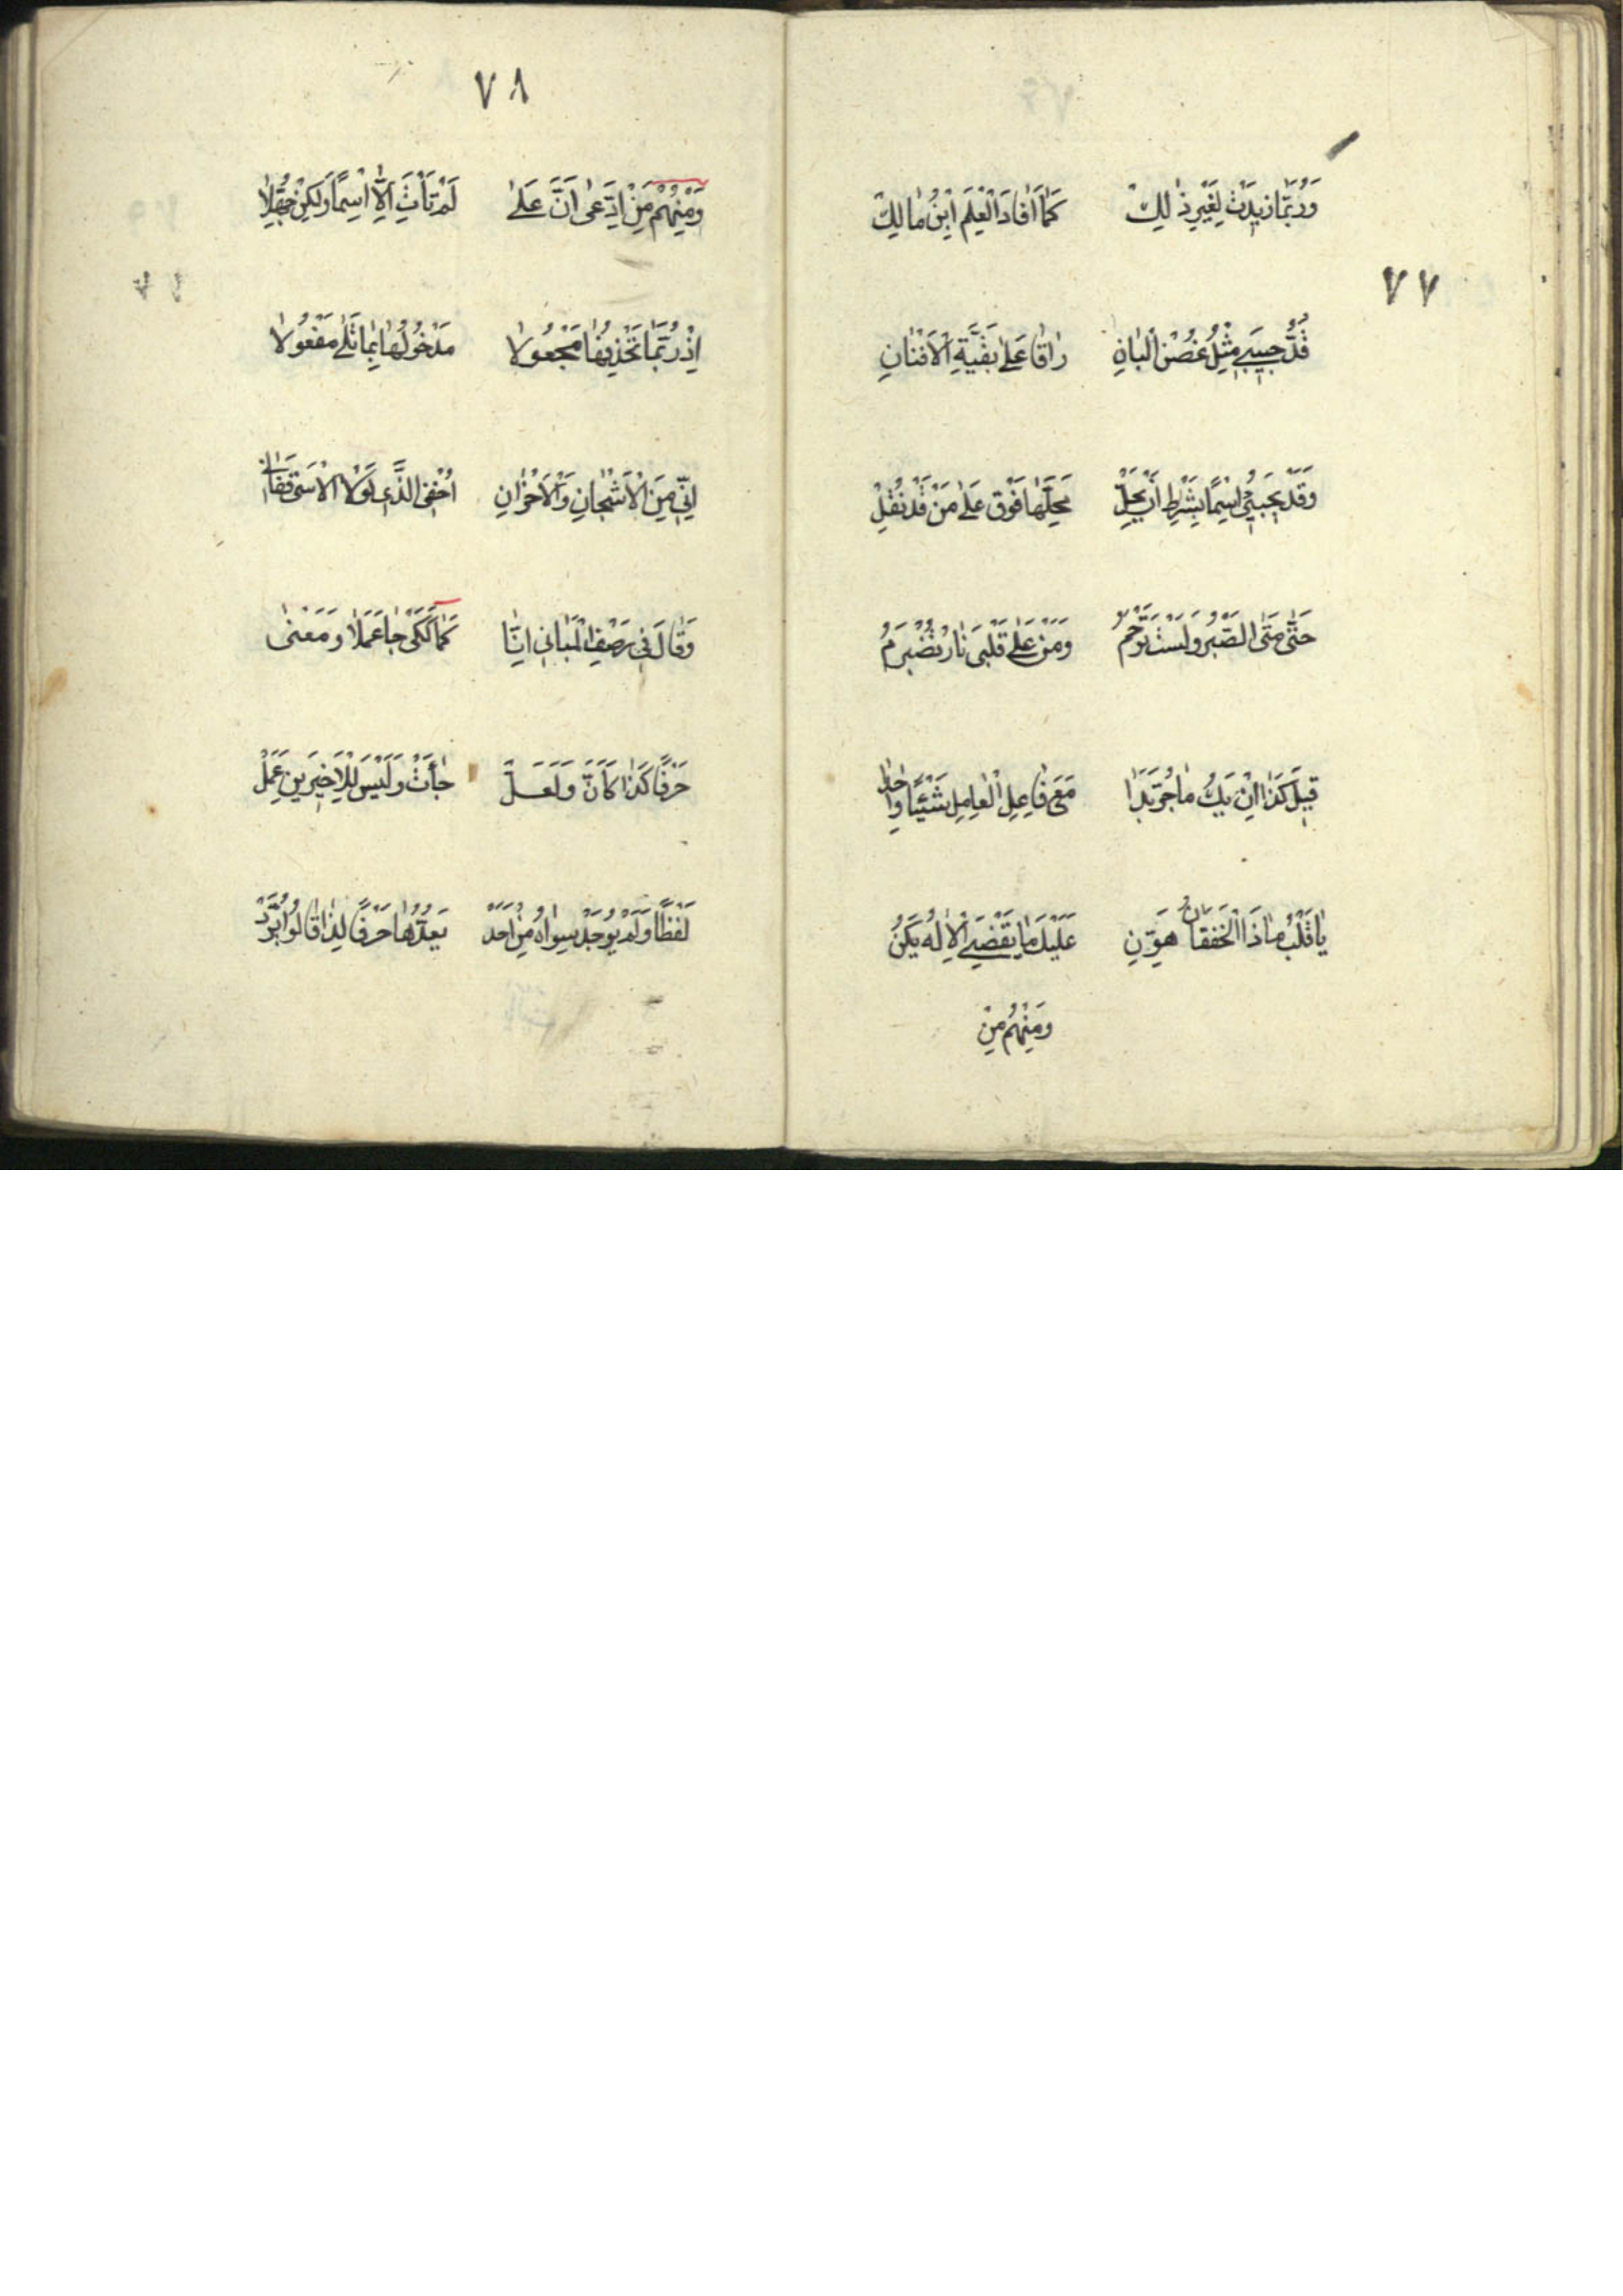 ٧٧
وَرُبَّمَا زِيدَتْ لِغَيْرِ ذٰلِكْ كَمَا أَفَادَ الْعِلْمَ ابْنُ مَالِكْ
قَدُّ حَبِيبِي مِثْلُ غُصْنِ الْبَانِ رَاقَا عَلَى بَقِيَّةِ الْأَفْنَانِ
وَقَدْ يَجِيءُ اسْمًا بِشَرْطِ أَنْ يَحِلّ مَحَلَّهَا فَوْق عَلَى مَنْ قَدْ نُقِلْ
حَتَّى مَتَى الصَّبْرُ وَلَسْتَ تَرْحَمُ وَمَنْ عَلَى قَلْبِي نَارٌ تُضْرَمُ
قِيلَ كَذَا إِنْ يَكُ مَا جُرَّ بَدَا مَعَ فَاعِلِ الْعَامِلِ شَيْئًا وَاحِدًا
يَا قَلْبُ مَا ذَا الْخَفَقَانُ هَوِّنِ عَلَيْكَ مَا يَقْضِي الْإِلٰهُ يَكُنُ
وَمِنْهُمْ مَنْ
٧٨
وَمِنْهُمْ مَنِ ادَّعَى أَنَّ عَلَى لَمْ تَأْتِ إِلَّا اسْمًا وَلَكِنْ جُهِّلَا
إِذْ رُبَّمَا تَحْذِيفُهَا مَجْعُولَا مَدْخُولُهَا بِمَا تَلَى مَفْعُولَا
إِنِّي مِنَ الْأَشْجَانِ وَالْأَحْزَانِ أُخْفِي الَّذِي لَوْلَا الْأَسَى قَضَانِي
وَقَالَ فِي رَصْفِ الْمَبَانِي إِنَّا كَمَا لَكِي جَا عَمَلًا وَمَعْنَى
حَرْفًا كَذَا كَأَنَّ وَلَعَلَّ جَأَتْ وَلَيْسَ لِلْأَخِيرَيْنِ عَمَلْ
لَفْظًا وَلَمْ يُوجَدْ سِوَاهُ مِنْ أَحَدْ يَعُدُّهَا حَرْفًا لِذَا قَالُوا يُرَدّ